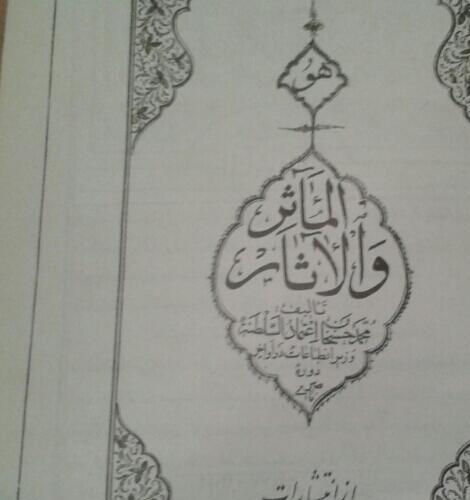 هو
المآثر
والآثار
تالیف
محمد حسنخان اعتماد السلطنة
وزیر انطباعات در اواخر
دوره
ناصری
از انتشارات